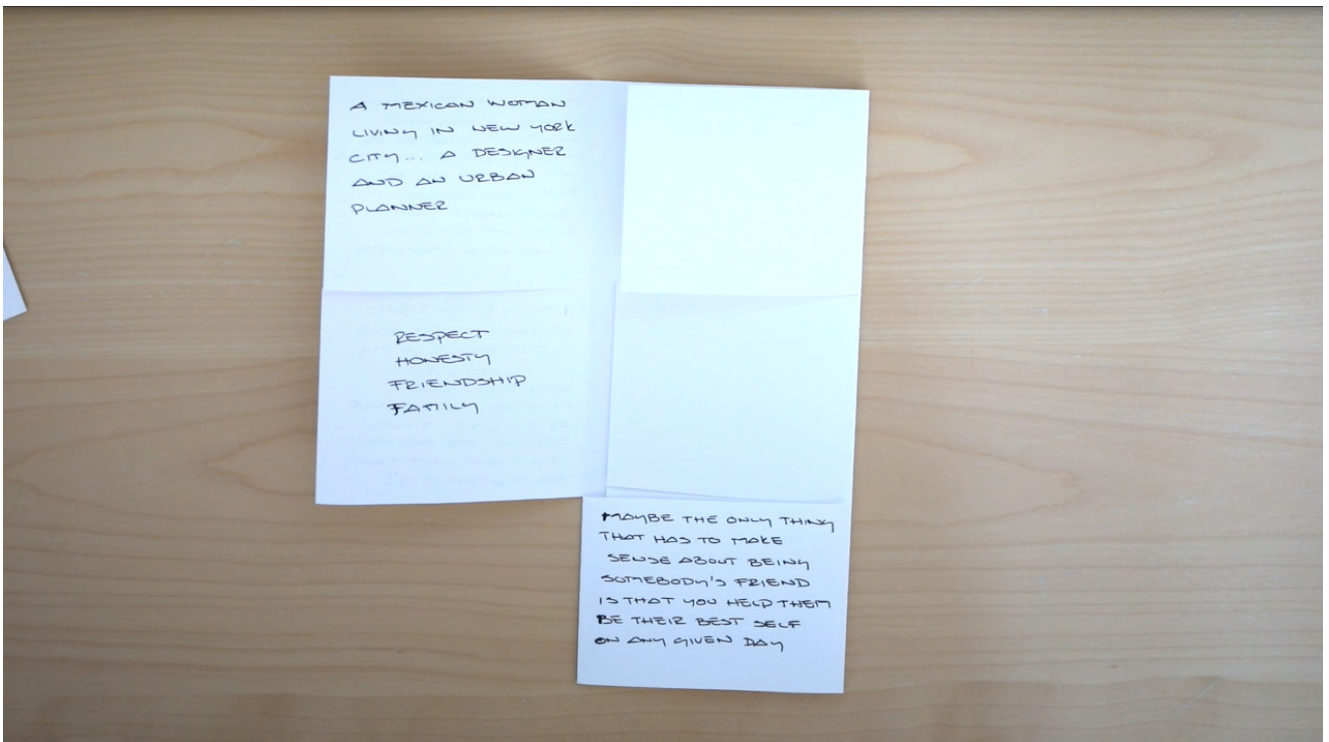 A MEXICAN WOMAN
LIVING IN NEW YORK
CITY... A DESIGNER
AND AN URBAN
PLANNER
RESPECT
HONESTY
FRIENDSHIP
FAMILY
MAYBE THE ONLY THING
THAT HAS TO MAKE
SENSE ABOUT BEING
SOMEBODY'S FRIEND
IS THAT YOU HELP THEM
BE THEIR BEST SELF
ON ANY GIVEN DAY